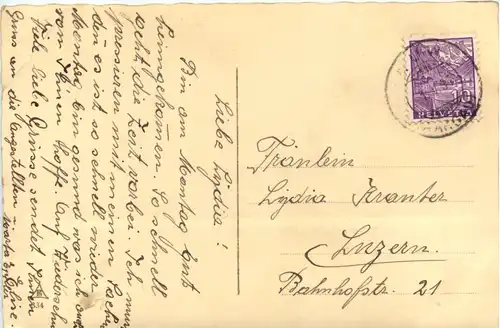 Liebe Lydia!
Bin am Montag Erst
heimgekommen. So schnell
geht die Zeit vorbei. Ich muss
pressieren mit meinen Sachen
den es ist so schnell wieder
Montag bin gesund was ich auch
von Ihnen hoffe. Auf Wiedersehn
Viele liebe Grüsse sendet
Gruss an die Angestellten
Fräulein
Lydia Kranter
Luzern.
Bahnhofstr. 21
10
HELVETIA